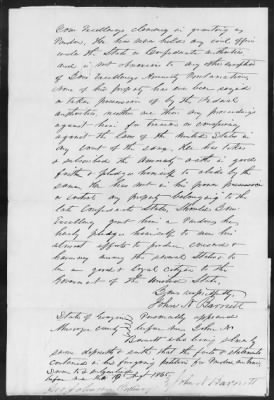 Your Excellency clemency in granting a
Pardon. He has never held any civil office
under the State or Confederate authorities
and is not obnoxious to any other exception
of Your Excellency Amnesty Proclamation,
None of his property has ever been seized
or taken possession of by the Federal
authorities, neither are there any proceedings
against him for treason or conspiracy
against the laws of the United States in
any court of the same. He has taken
& subscribed the Amnesty oath in good
faith & pledges himself to abide by the
same. He has not in his power possession
or control any property belonging to the
late Confederate States, Should Your
Excellency grant him a Pardon he
hereby pledges himself to use his
utmost efforts to produce concord &
harmony among the several States & to
be a good & loyal citizen to the
Government of the United States,
Yours respectfully
John N Barnett
State of Georgia
Monroe county
Personally appeared
before me John N
Barnett who being sworn
says deposeth & saith that the facts & statements
contained in the foregoing petition for Pardon are true,
Sworn to & subscribed
before me this Augt 1865
John N Barnett